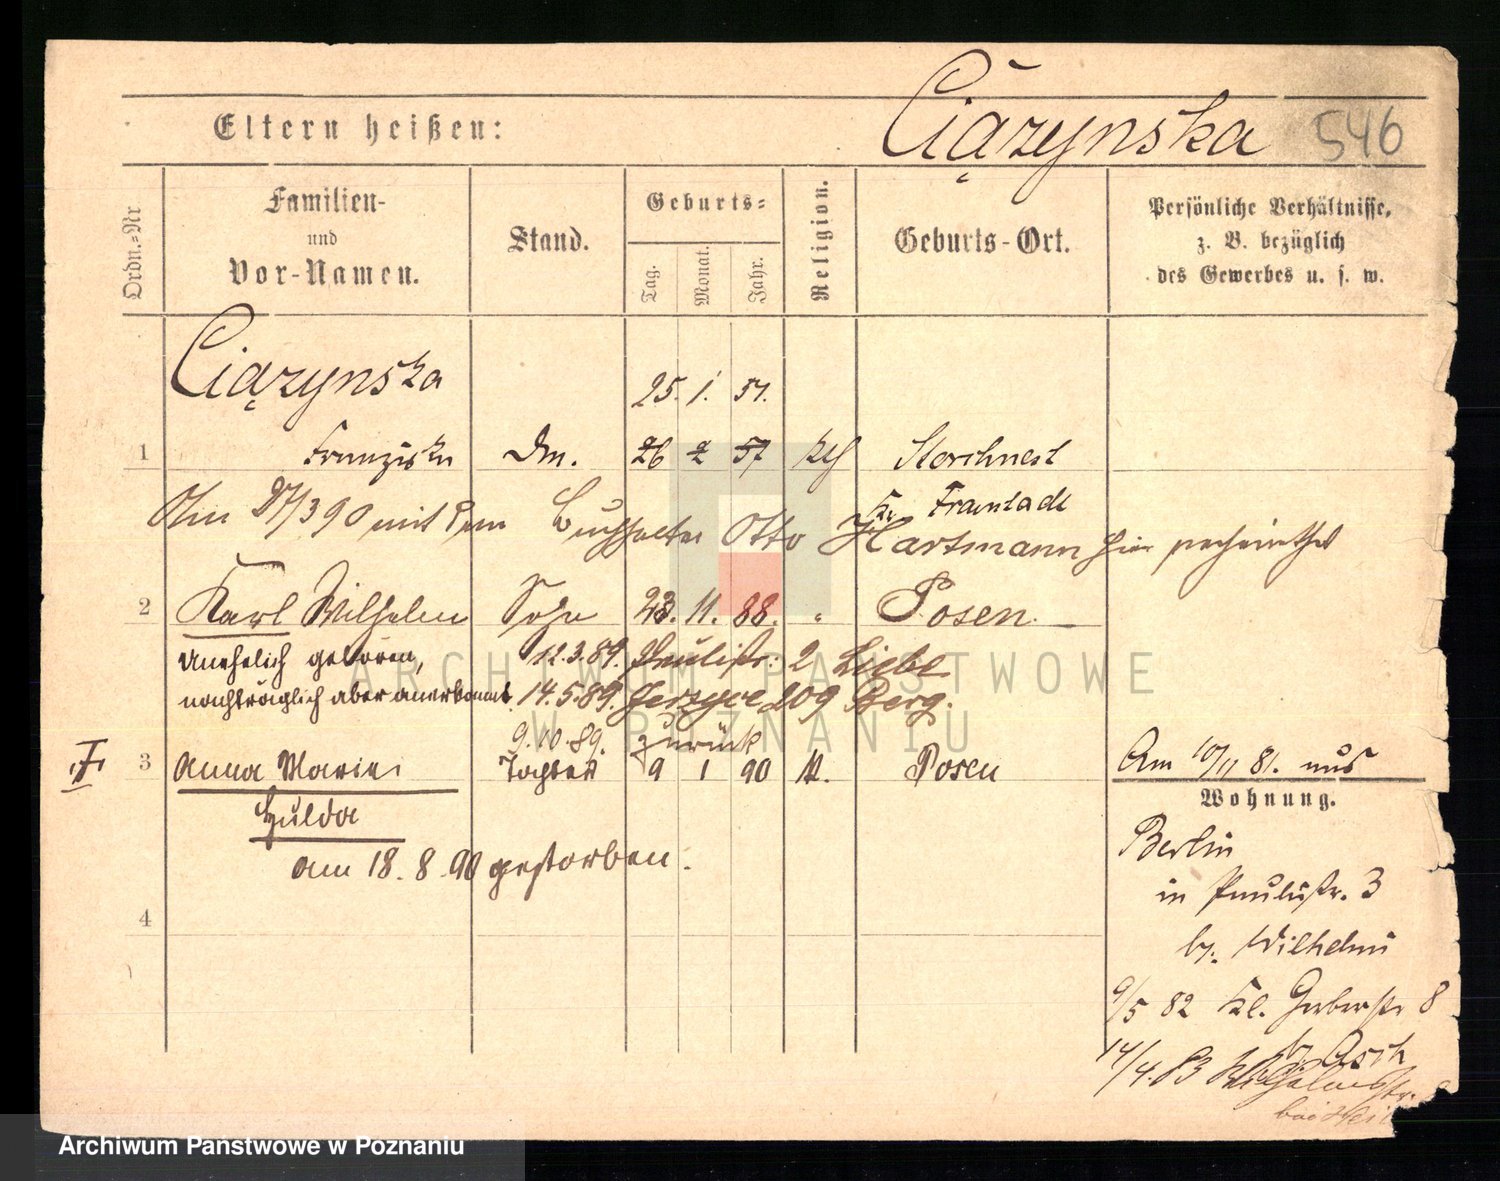 Eltern heißen:
Ciązynska 546
Ordn.-Nr
Familien-
und
Vor-Namen.
Stand.
Geburts-
Tag.
Monat.
Jahr.
Religion.
Geburts-Ort.
Persönliche Verhältnisse,
z. B. bezüglich
des Gewerbes u. s. w.
Ciązynska
25. 1. 57.
1 Franziska 26 2 57 Storchnest
Kr. Fraustadt
Am 27/3 90 mit dem Buchhalter Otto Hartmann hier verheirathet
2 Karl Wilhelm Sohn 23. 11. 88. " Posen
unehelich geboren, 12.3.89. Paulistr: 2 Liebe
nachträglich aber anerkannt 14.5.89. Jerzyce 209 Berg.
9.10.89. zurück
3 Anna Marie Tochter 9 1 90 k. Posen
Hulda
am 18. 8. 90 gestorben.
4
Am 10/11 81. aus
Wohnung.
Berlin
in Paulistr. 3
b. Wilhelmi
9/5 82 Kl. Gerberstr 8
b. Asch
14/4.83 Wilhelmstr.
bei
ARCHIWUM PAŃSTWOWE
W POZNANIU
Archiwum Państwowe w Poznaniu